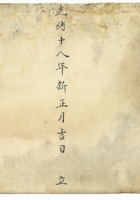 光緒十八年新正月吉日 立